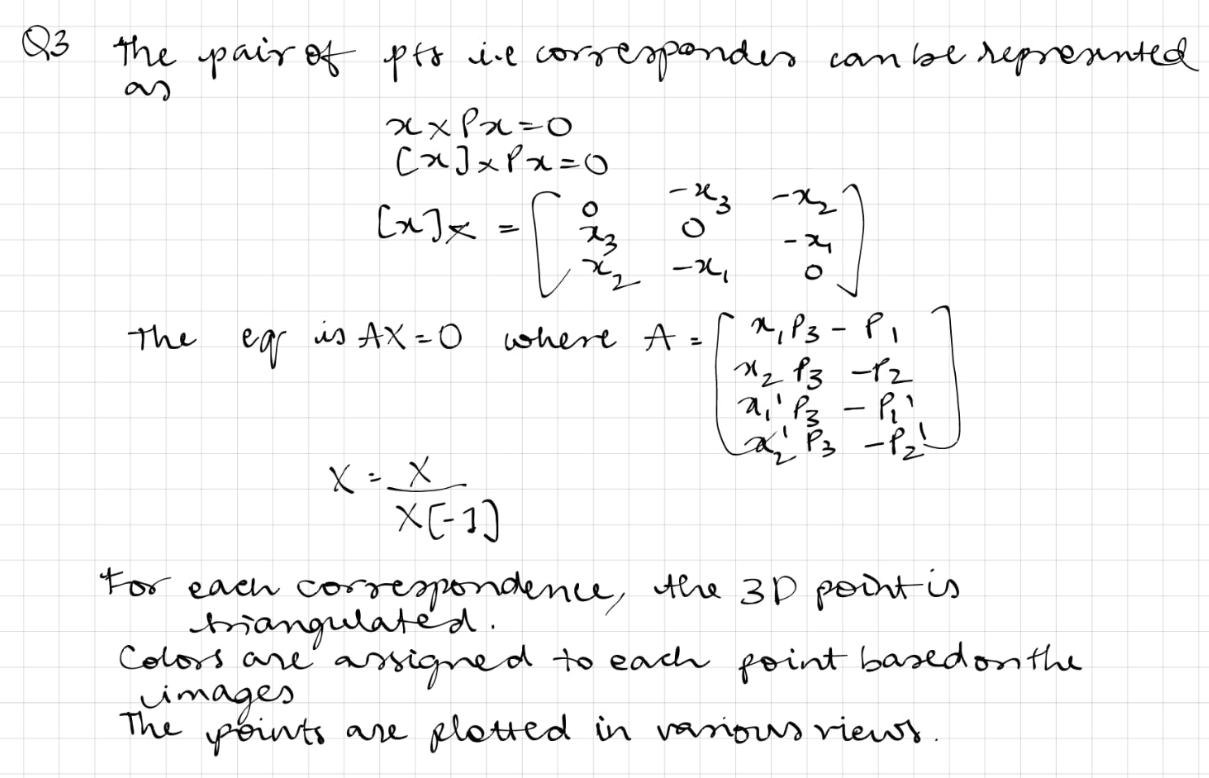 Q3 the pair of pts i.e correspondes can be represented
as
x × Px = 0
[x]× Px = 0
[x]× = [ 0 -x₃ -x₂
x₃ 0 -x₁
x₂ -x₁ 0 ]
The eqⁿ is AX = 0 where A = [ x₁P₃ - P₁
x₂ P₃ - P₂
x₁' P₃ - P₁'
x₂' P₃ - P₂' ]
X = X
X[-1]
For each correspondence, the 3D point is
triangulated.
Colors are assigned to each point based on the
images
The points are plotted in various views.